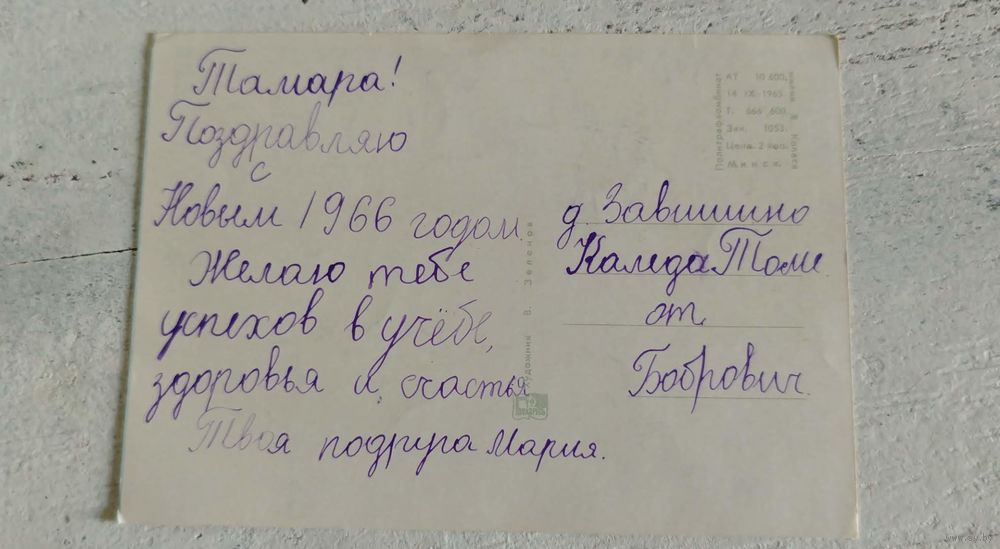 Тамара!
Поздравляю
с
Новым 1966 годом.
Желаю тебе
успехов в учёбе,
здоровья и счастья
Твоя подруга Мария.
д. Завишино
Каледа Томе.
от
Бобрович.
Художник В. Зеленов
АТ 10 600,
14 IX-1965
Т. 666 600.
Зак. 1053.
Цена 2 коп.
Минск.
Полиграфкомбинат
имени Я. Коласа